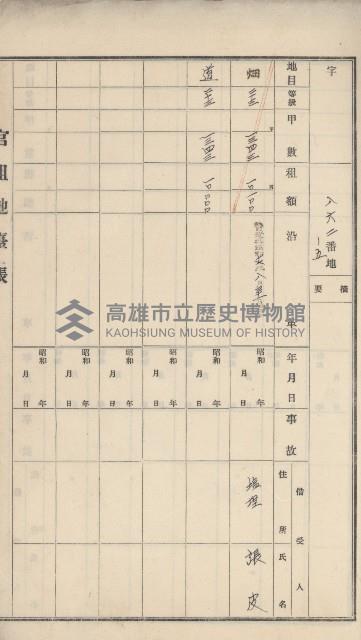 字
八六二番地
一五
摘要
地目
等級
甲數
租額
沿革
年月日
事故
借受人
住所
氏名
畑
一四三
一〇〇〇
昭和 年 月 日
塩埕
張皮
道
一四三
一〇〇〇
昭和 年 月 日
昭和 年 月 日
昭和 年 月 日
昭和 年 月 日
昭和 年 月 日
官租地臺帳
高雄市立歷史博物館
KAOHSIUNG MUSEUM OF HISTORY